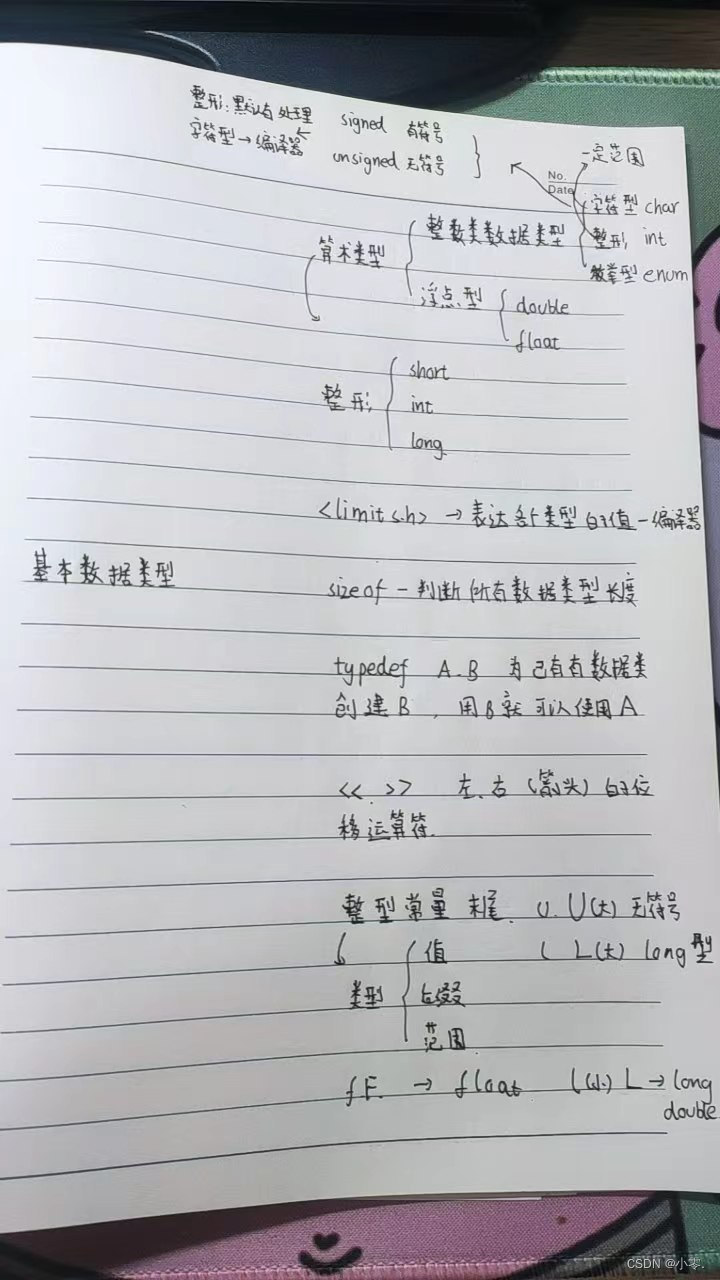 整形:默认有处理 signed 有符号
字符型→编译器 unsigned 无符号
一定范围
No.
Date
字符型 char
整数类数据类型 整形 int
算术类型 枚举型 enum
浮点型 double
float
short
整形 int
long
<limits.h> → 表达各个类型的值-编译器
基本数据类型
sizeof - 判断所有数据类型长度
typedef A.B 为已有有数据类
创建B,用B就可以使用A
<< >> 左、右(箭头)的位
移运算符.
整型常量 末尾. u.U(大) 无符号
值 l L(大) long型
类型 后缀
范围
f F. → float l(小) L → long
double
CSDN @小零.